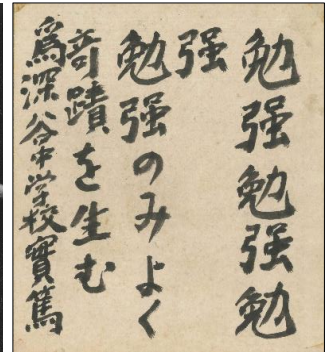 勉强勉强勉
强
勉强のみよく
奇蹟を生む
爲深谷中学校實篤